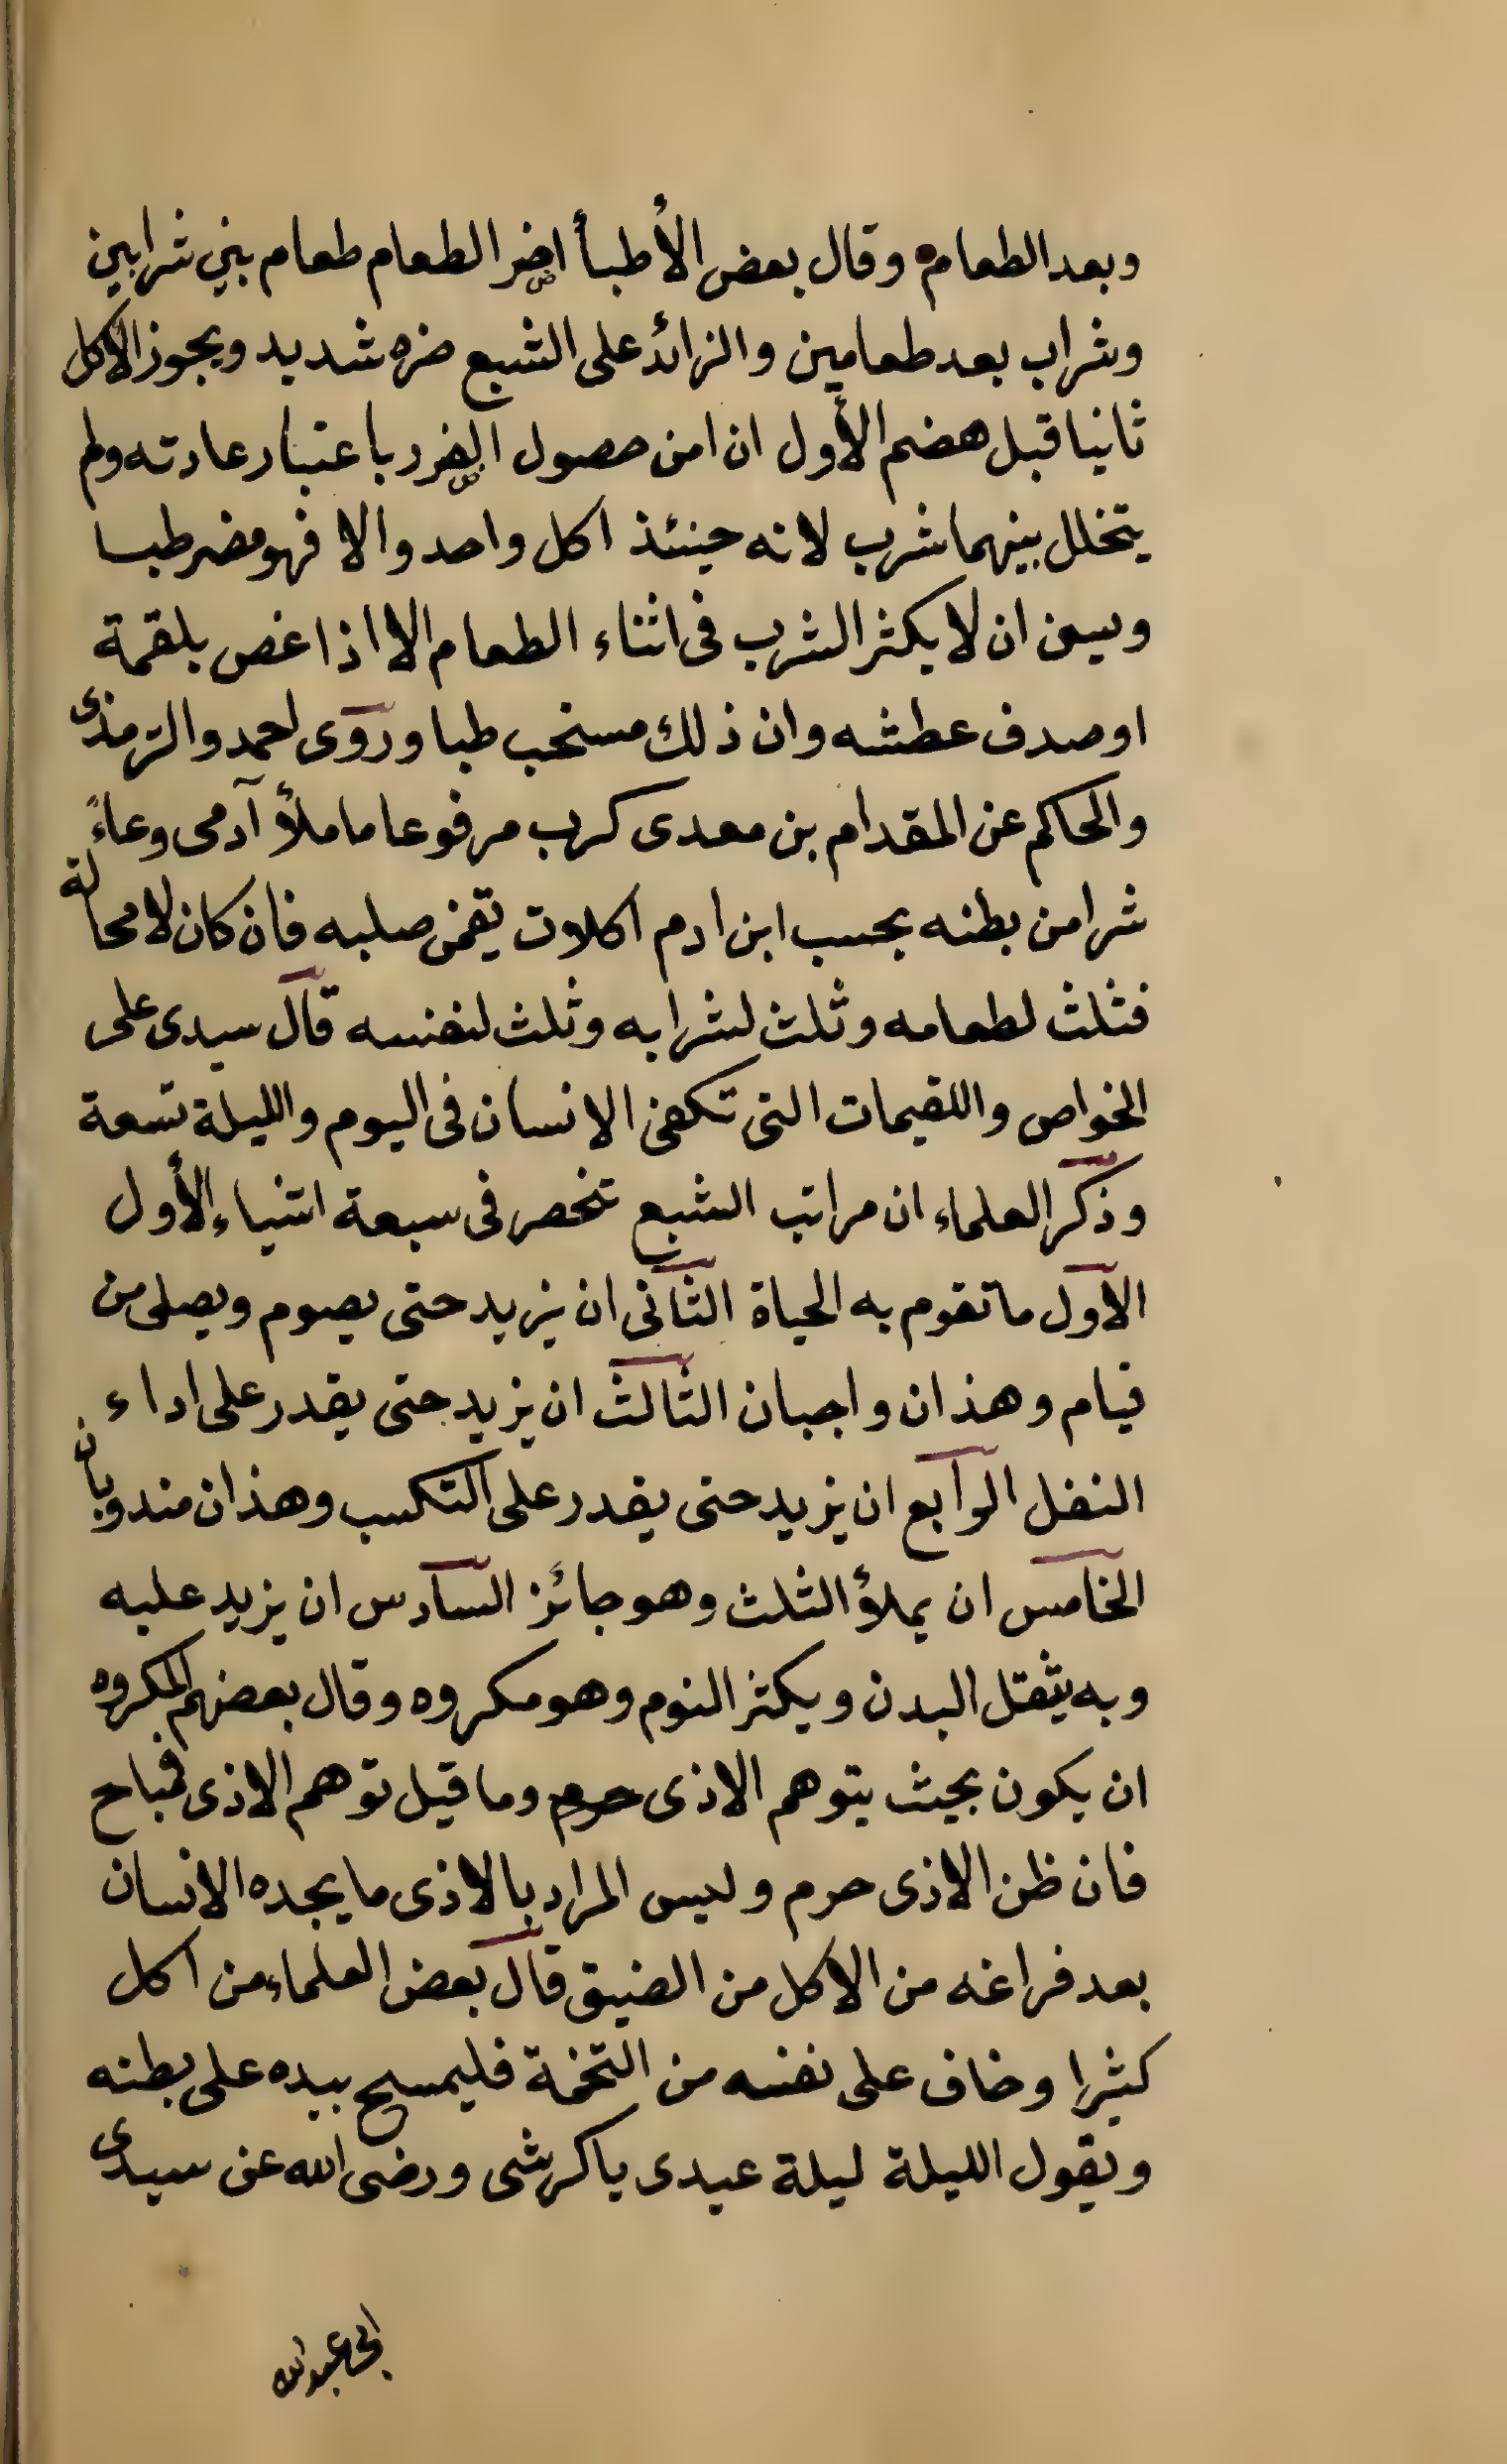 وبعد الطعام وقال بعض الأطبأ اضر الطعام طعام بين شرابين
وشراب بعد طعامين والزائد على الشبع ضره شديد ويجوز الأكل
ثانيا قبل هضم الأول ان امن حصول الضرر باعتبار عادته ولم
يتخلل بينهما شرب لانه حينئذ اكل واحد والا فهو مضر طبا
ويسن ان لا يكثر الشرب فى اثناء الطعام الا اذا غص بلقمة
او صدف عطشه وان ذلك مستحب طبا وروى احمد والترمذى
والحاكم عن المقدام بن معدى كرب مرفوعا ما ملأ آدمى وعاءً
شرا من بطنه بحسب ابن ادم اكلات يقمن صلبه فان كان لا محالة
فثلث لطعامه وثلث لشرابه وثلث لنفسه قال سيدى على
الخواص واللقيمات التى تكفى الانسان فى اليوم والليلة تسعة
وذكر العلماء ان مراتب الشبع تنحصر فى سبعة اشياء الأول
الاول ما تقوم به الحياة الثانى ان يزيد حتى يصوم ويصلى من
قيام وهذان واجبان الثالث ان يزيد حتى يقدر على اداء
النفل الرابع ان يزيد حتى يقدر على التكسب وهذان مندوبان
الخامس ان يملؤ الثلث وهو جائز السادس ان يزيد عليه
وبه يثقل البدن ويكثر النوم وهو مكروه وقال بعضهم المكروه
ان يكون بحيث يتوهم الاذى حرم وما قيل توهم الاذى فمباح
فان ظن الاذى حرم وليس المراد بالاذى ما يجده الانسان
بعد فراغه من الاكل من الضيق قال بعض العلماء من اكل
كثيرا وخاف على نفسه من التخمة فليمسح بيده على بطنه
ويقول الليلة ليلة عيدى يا كرشى ورضى الله عن سيدى
ابى عبد الله